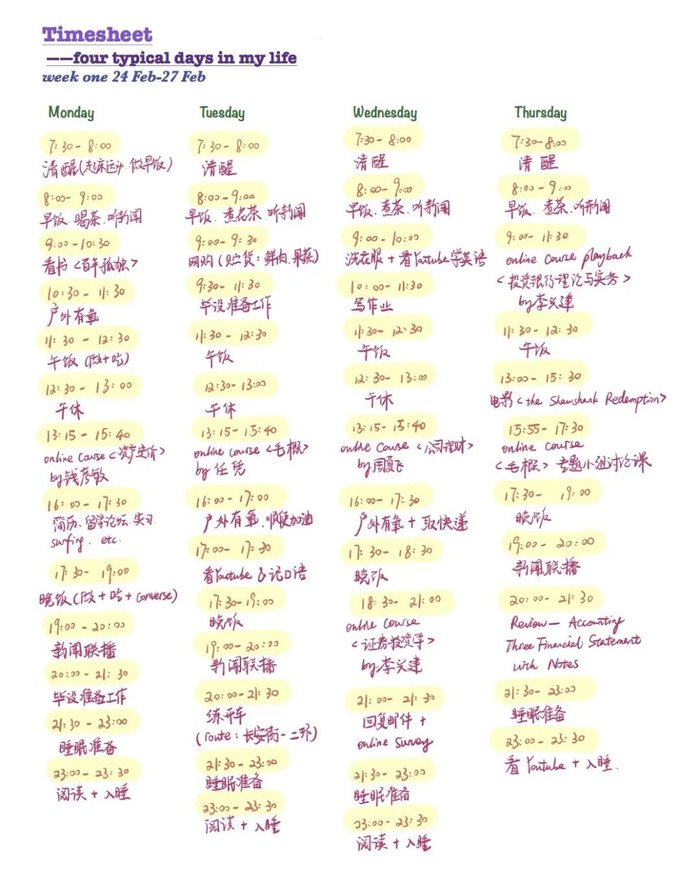 Timesheet
——four typical days in my life
week one 24 Feb-27 Feb
Monday
7:30 - 8:00
清醒(起床运动.做早饭)
8:00 - 9:00
早饭.喝茶.听新闻
9:00 - 10:30
看书<百年孤独>
10:30 - 11:30
户外有氧
11:30 - 12:30
午饭(做+吃)
12:30 - 13:00
午休
13:15 - 15:40
online course <资产定价>
by钱彦敏
16:00 - 17:30
简历.留学论坛.实习
surfing. etc.
17:30 - 19:00
晚饭(做+吃+converse)
19:00 - 20:00
新闻联播
20:00 - 21:30
毕设准备工作
21:30 - 23:00
睡眠准备
23:00 - 23:30
阅读 + 入睡
Tuesday
7:30 - 8:00
清醒
8:00 - 9:00
早饭.煮花茶.听新闻
9:00 - 9:30
网购(贮货:鲜肉.果蔬)
9:30 - 11:30
毕设准备工作
11:30 - 12:30
午饭
12:30 - 13:00
午休
13:15 - 15:40
online course <毛概>
by 任
16:00 - 17:00
户外有氧.顺便加油
17:00 - 17:30
看Youtube & 记口语
17:30 - 19:00
晚饭
19:00 - 20:00
新闻联播
20:00 - 21:30
练开车
(route: 长安街 - 二环)
21:30 - 23:00
睡眠准备
23:00 - 23:30
阅读 + 入睡
Wednesday
7:30 - 8:00
清醒
8:00 - 9:00
早饭.煮茶.听新闻
9:00 - 10:00
洗衣服 + 看Youtube学英语
10:00 - 11:30
写作业
11:30 - 12:30
午饭
12:30 - 13:00
午休
13:15 - 15:40
online course <公司理财>
by周夏飞
16:00 - 17:30
户外有氧 + 取快递
17:30 - 18:30
晚饭
18:30 - 21:00
online course
<证券投资学>
by李义建
21:00 - 21:30
回复邮件 +
online survey
21:30 - 23:00
睡眠准备
23:00 - 23:30
阅读 + 入睡
Thursday
7:30 - 8:00
清醒
8:00 - 9:00
早饭.煮茶.听新闻
9:00 - 11:30
online course playback
<投资银行理论与实务>
by李义建
11:30 - 12:30
午饭
13:00 - 15:30
电影<the Shawshank Redemption>
15:55 - 17:30
online course
<毛概>专题小组讨论课
17:30 - 19:00
晚饭
19:00 - 20:00
新闻联播
20:00 - 21:30
Review — Accounting
Three Financial Statement
with Notes
21:30 - 23:00
睡眠准备
23:00 - 23:30
看 Youtube + 入睡.